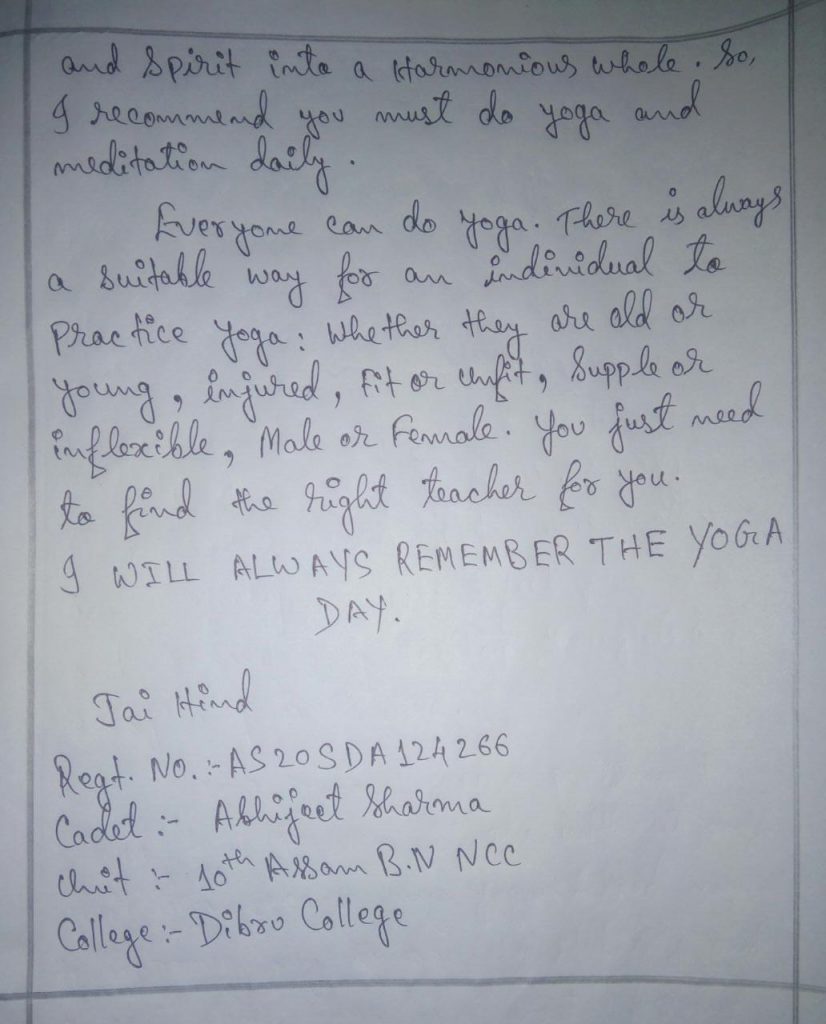 and Spirit into a Harmonious whole. So,
I recommend you must do yoga and
meditation daily.
Everyone can do yoga. There is always
a suitable way for an individual to
Practice yoga: Whether they are old or
young, injured, Fit or unfit, Supple or
inflexible, Male or Female. You just need
to find the right teacher for you.
I WILL ALWAYS REMEMBER THE YOGA
DAY.
Jai Hind
Regt. No. :- AS20SDA124266
Cadet :- Abhijeet Sharma
Unit :- 10th Assam B.N NCC
College :- Dibru College